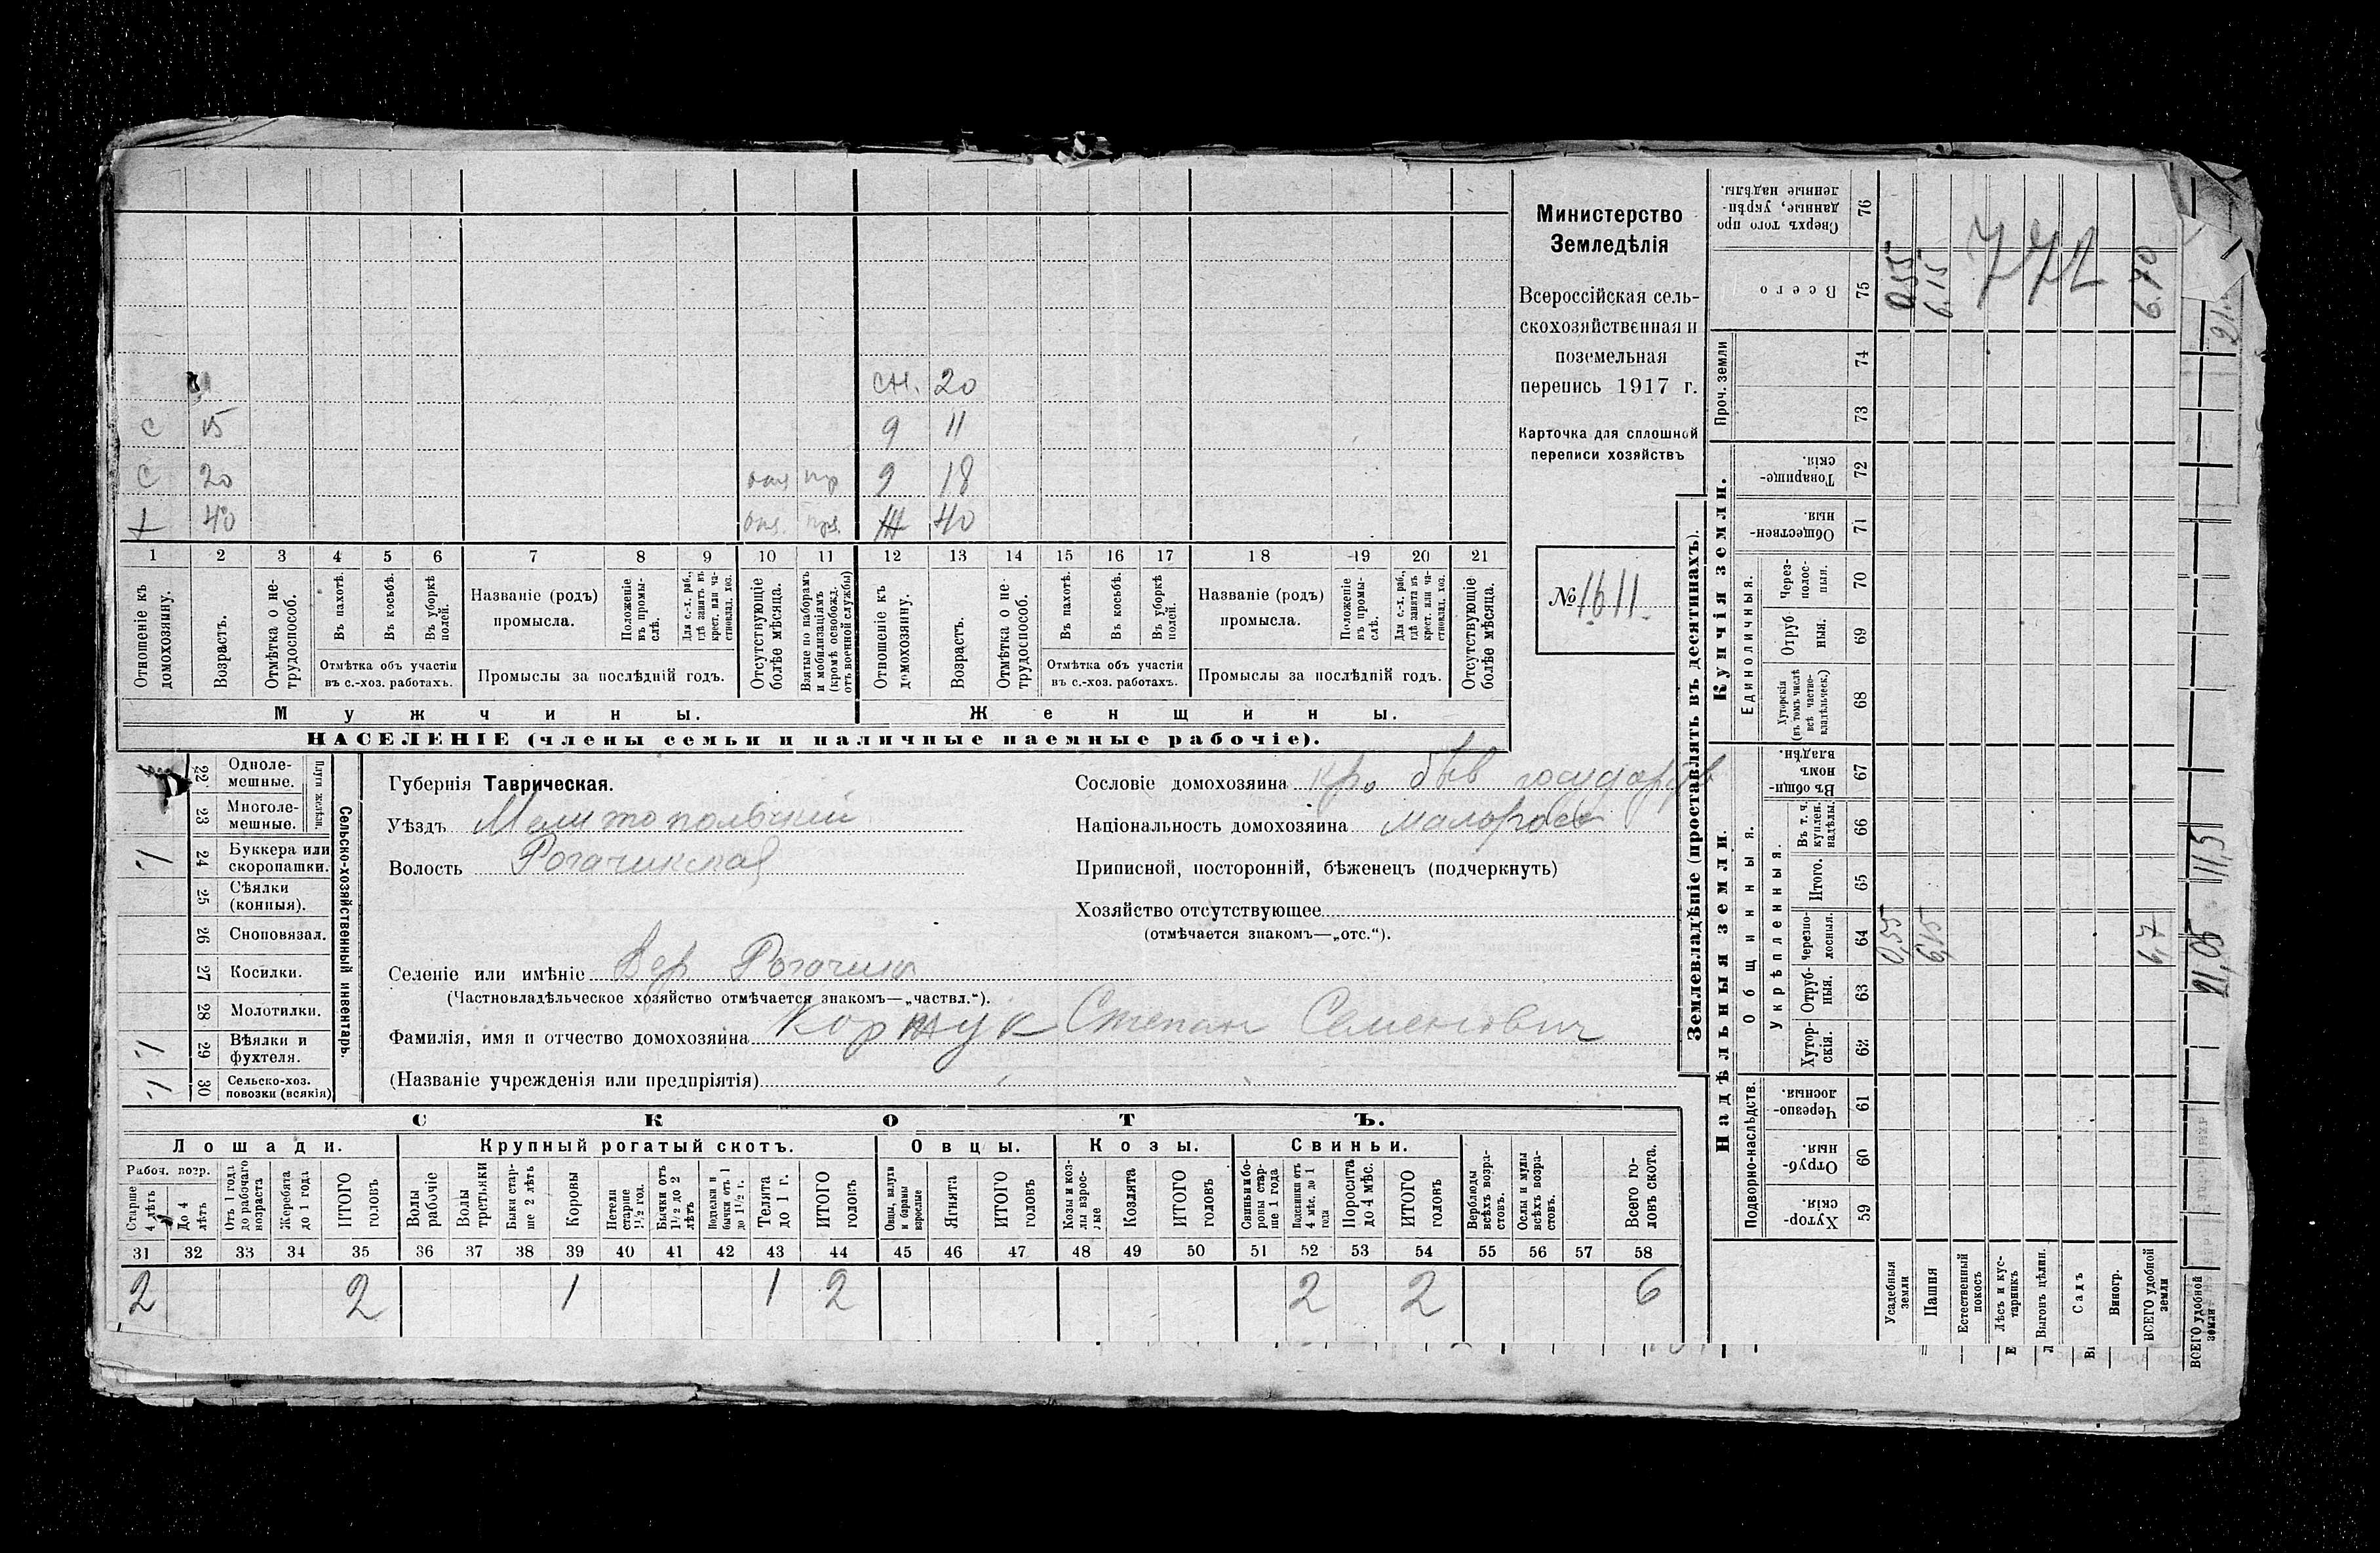 Министерство
Земледѣлія
Всероссійская сель-
скохозяйственная и
поземельная
перепись 1917 г.
Карточка для сплошной
переписи хозяйствъ
№ 1611.
сн. 20
с 15 9 11
с 20 9 18
40 ж 40
1 2 3 4 5 6 7 8 9 10 11 12 13 14 15 16 17 18 19 20 21
Отношеніе къ домохозяину.
Возрастъ.
Отмѣтка о не-трудоспособ.
Въ пахотѣ.
Въ косьбѣ.
Въ уборкѣ полей.
Отмѣтка объ участіи
въ с.-хоз. работахъ.
Названіе (родъ)
промысла.
Положеніе въ промы-слѣ.
Для с.-х. раб., гдѣ занятъ въ крест. или ча-стновлад. хоз.
Промыслы за послѣдній годъ.
Отсутствующіе болѣе мѣсяца.
Взятые по наборамъ и мобилизаціямъ (кромѣ освобожд. отъ военной службы)
Отношеніе къ домохозяину.
Возрастъ.
Отмѣтка о не-трудоспособ.
Въ пахотѣ.
Въ косьбѣ.
Въ уборкѣ полей.
Отмѣтка объ участіи
въ с.-хоз. работахъ.
Названіе (родъ)
промысла.
Положеніе въ промы-слѣ.
Для с.-х. раб., гдѣ занята въ крест. или ча-стновлад. хоз.
Промыслы за послѣдній годъ.
Отсутствующіе болѣе мѣсяца.
Мужчины.
Женщины.
НАСЕЛЕНІЕ (члены семьи и наличные наемные рабочіе).
Сельско-хозяйственный инвентарь.
Плуги желѣзн.
22 Одноле-мешные.
23 Многоле-мешные.
1 24 Буккера или скоропашки.
25 Сѣялки (конныя).
26 Сноповязал.
27 Косилки.
28 Молотилки.
1 29 Вѣялки и фухтеля.
1 30 Сельско-хоз. повозки (всякія)
Губернія Таврическая.
Уѣздъ Мелитопольский
Волость Рогачикская
Селеніе или имѣніе Вер Рогачик
(Частновладѣльческое хозяйство отмѣчается знакомъ—„частвл.“).
Фамилія, имя и отчество домохозяина Коржук Степан Семенович
(Названіе учрежденія или предпріятія)
Сословіе домохозяина кр. быв государств
Національность домохозяина малоросс
Приписной, посторонній, бѣженецъ (подчеркнуть)
Хозяйство отсутствующее
(отмѣчается знакомъ—„отс.“).
СКОТЪ.
Лошади. Крупный рогатый скотъ. Овцы. Козы. Свиньи.
Рабоч. возр.
Старше 4 лѣтъ
До 4 лѣтъ
Отъ 1 года до рабочаго возраста
Жеребята до 1 года
ИТОГО головъ
Волы рабочіе
Волы третьяки
Быки стар-ше 2 лѣтъ
Коровы
Петели старше 1½ год.
Бычки отъ 1½ до 2 лѣтъ
Подтелки и бычки отъ 1 до 1½ г.
Телята до 1 г.
ИТОГО головъ
Овцы, валухи и бараны взрослые
Ягнята
ИТОГО головъ
Козы и коз-лы взрос-лые
Козлята
ИТОГО головъ
Свиньи и бо-ровы стар-ше 1 года
Подсвинки отъ 4 мѣс. до 1 года
Поросята до 4 мѣс.
ИТОГО головъ
Верблюды всѣхъ возра-стовъ.
Ослы и мулы всѣхъ возра-стовъ.
Всего го-ловъ скота.
31 32 33 34 35 36 37 38 39 40 41 42 43 44 45 46 47 48 49 50 51 52 53 54 55 56 57 58
2 2 1 1 2 2 2 6
Землевладѣніе (проставлять въ десятинахъ).
Купчія земли.
Надѣльныя земли.
Сверхъ того про данные, укрѣп-ленные надѣлы. 76
Всего 75
0,55 6.15 772 6.70
Проч. земли 74 73
Товарище-скія. 72
Обществен-ныя. 71
Единоличныя.
Через-полос-ныя. 70
Отруб ныя. 69
Хуторскія (въ томъ числѣ всѣ частно-владѣльческ.) 68
Общинныя.
Въ общи-номъ владѣн. 67
Укрѣпленныя.
Въ т. ч. куплен. надѣлы. 66
Итого. 65
Черезпо-лосныя. 64
0,55 6,15 6,7
Отруб-ныя. 63
Хутор-скія. 62
Подворно-наслѣдств.
Черезпо-лосныя. 61
Отруб-ныя. 60
Хутор-скія. 59
Усадебныя земли
Пашня
Естественный покосъ
Лѣсъ и кус-тарникъ
Выгонъ цѣлин.
Садъ
Виногр.
ВСЕГО удобной земли
ВСЕГО удобной земли
21,05 11,5